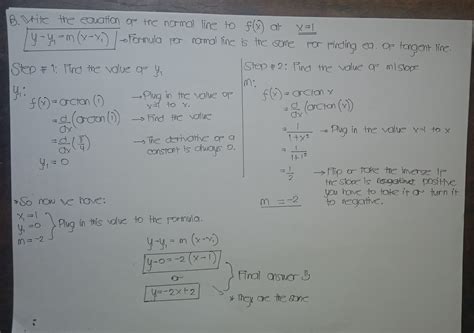 B. Write the equation of the normal line to f(x) at x=1
y-y₁=m(x-x₁) → Formula for normal line is the same for finding eq. of tangent line.
Step #1: Find the value of y₁
y₁:
f(x)=arctan(1) → Plug in the value of x=1 to x.
= d/dx (arctan(1)) → Find the value
= d/dx (π/4) → The derivative of a constant is always 0.
y₁ = 0
Step #2: Find the value of m|slope
m:
f(x)=arctan x
= d/dx (arctan x)
= 1/1+x² → Plug in the value x=1 to x
= 1/1+1²
= 1/2 → Flip or take the inverse if the slope is negative positive you have to take it or turn it to negative.
m = -2
*So now we have:
x₁=1
y₁=0
m=-2
Plug in this value to the formula.
y-y₁=m(x-x₁)
y-0=-2(x-1)
or
y=-2x+2
Final answer
*They are the same